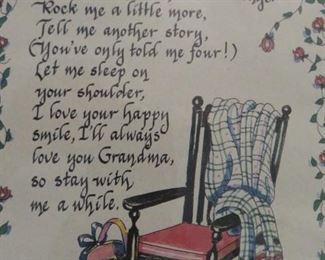 Rock me a little more,
Tell me another story,
(You've only told me four!)
Let me sleep on
your shoulder,
I love your happy
smile, I'll always
love you Grandma,
so stay with
me a while.